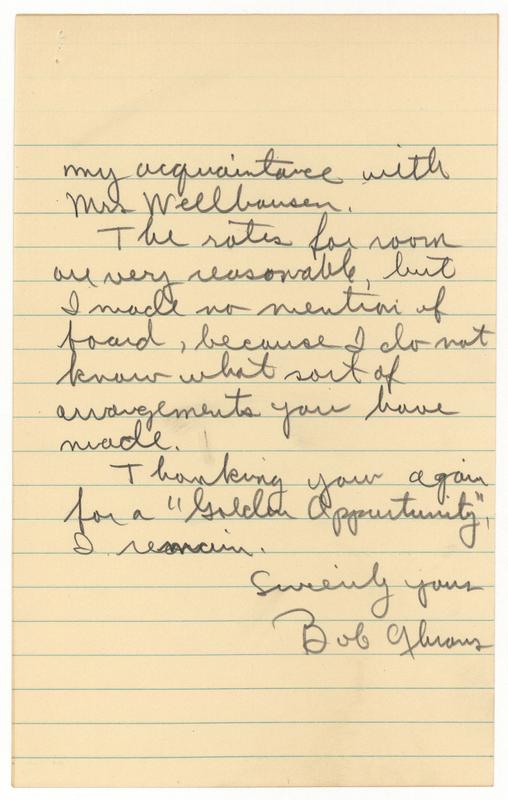 my acquaintance with
Mrs Wellhausen.
The rates for room
are very reasonable, but
I made no mention of
board, because I do not
know what sort of
arrangements you have
made.
Thanking you again
for a "Golden Oppurtunity",
I remain.
Sincerely yours
Bob